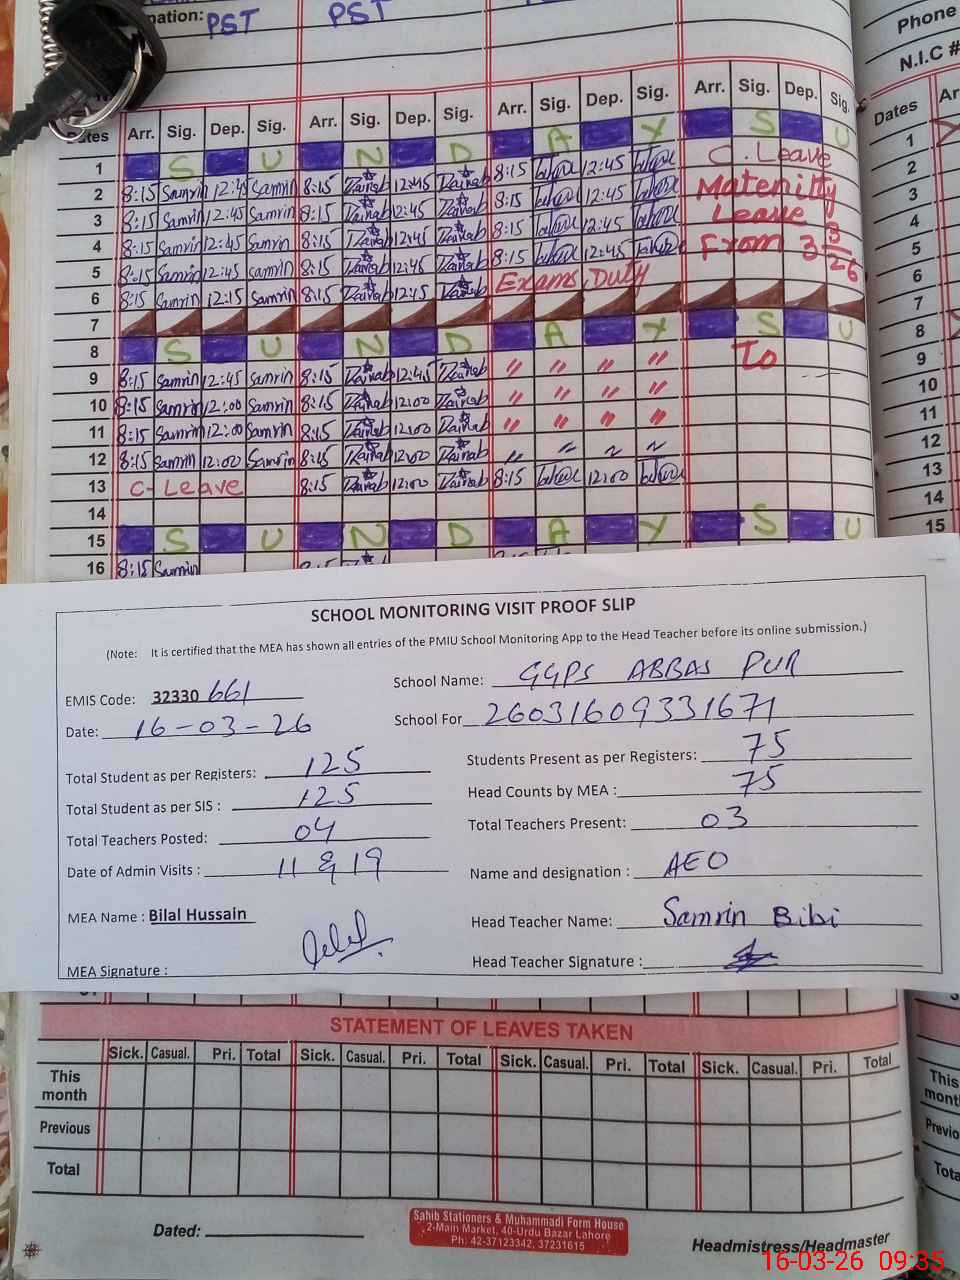 nation: PST PST
Phone
N.I.C #
Dates Arr. Sig. Dep. Sig. Arr. Sig. Dep. Sig. Arr. Sig. Dep. Sig. Arr. Sig. Dep. Sig. Dates Ar
1 S U N D A Y S U 1
2 8:15 Samrin 12:45 Samrin 8:15 Zainab 12:45 Zainab 8:15 12:45 C. Leave 2
3 8:15 Samrin 12:45 Samrin 8:15 Zainab 12:45 Zainab 8:15 12:45 Maternity 3
4 8:15 Samrin 12:45 Samrin 8:15 Zainab 12:45 Zainab 8:15 12:45 Leave 4
5 8:15 Samrin 12:45 Samrin 8:15 Zainab 12:45 Zainab 8:15 12:45 From 3 3/26 5
6 8:15 Samrin 12:15 Samrin 8:15 Zainab 12:15 Zainab Exams Duty 6
7 7
8 S U N D A Y S U 8
9 8:15 Samrin 12:45 Samrin 8:15 Zainab 12:45 Zainab " " " " To 9
10 8:15 Samrin 12:00 Samrin 8:15 Zainab 12:00 Zainab " " " " 10
11 8:15 Samrin 12:00 Samrin 8:15 Zainab 12:00 Zainab " " " " 11
12 8:15 Samrin 12:00 Samrin 8:15 Zainab 12:00 Zainab " " " " 12
13 C- Leave 8:15 Zainab 12:00 Zainab 8:15 12:00 13
14 14
15 S U N D A Y S U 15
16 8:15 Samrin
SCHOOL MONITORING VISIT PROOF SLIP
(Note: It is certified that the MEA has shown all entries of the PMIU School Monitoring App to the Head Teacher before its online submission.)
EMIS Code: 32330 661 School Name: GGPS ABBAS PUR
Date: 16-03-26 School For 26031609331671
Total Student as per Registers: 125 Students Present as per Registers: 75
Total Student as per SIS : 125 Head Counts by MEA : 75
Total Teachers Posted: 04 Total Teachers Present: 03
Date of Admin Visits : 11 & 19 Name and designation : AEO
MEA Name : Bilal Hussain Head Teacher Name: Samrin Bibi
MEA Signature : Head Teacher Signature :
STATEMENT OF LEAVES TAKEN
Sick. Casual. Pri. Total Sick. Casual. Pri. Total Sick. Casual. Pri. Total Sick. Casual. Pri. Total
This month This month
Previous Previo
Total Tota
Dated:
Sahib Stationers & Muhammadi Form House
2-Main Market, 40-Urdu Bazar Lahore
Ph: 42-37123342, 37231615
Headmistress/Headmaster
16-03-26 09:35